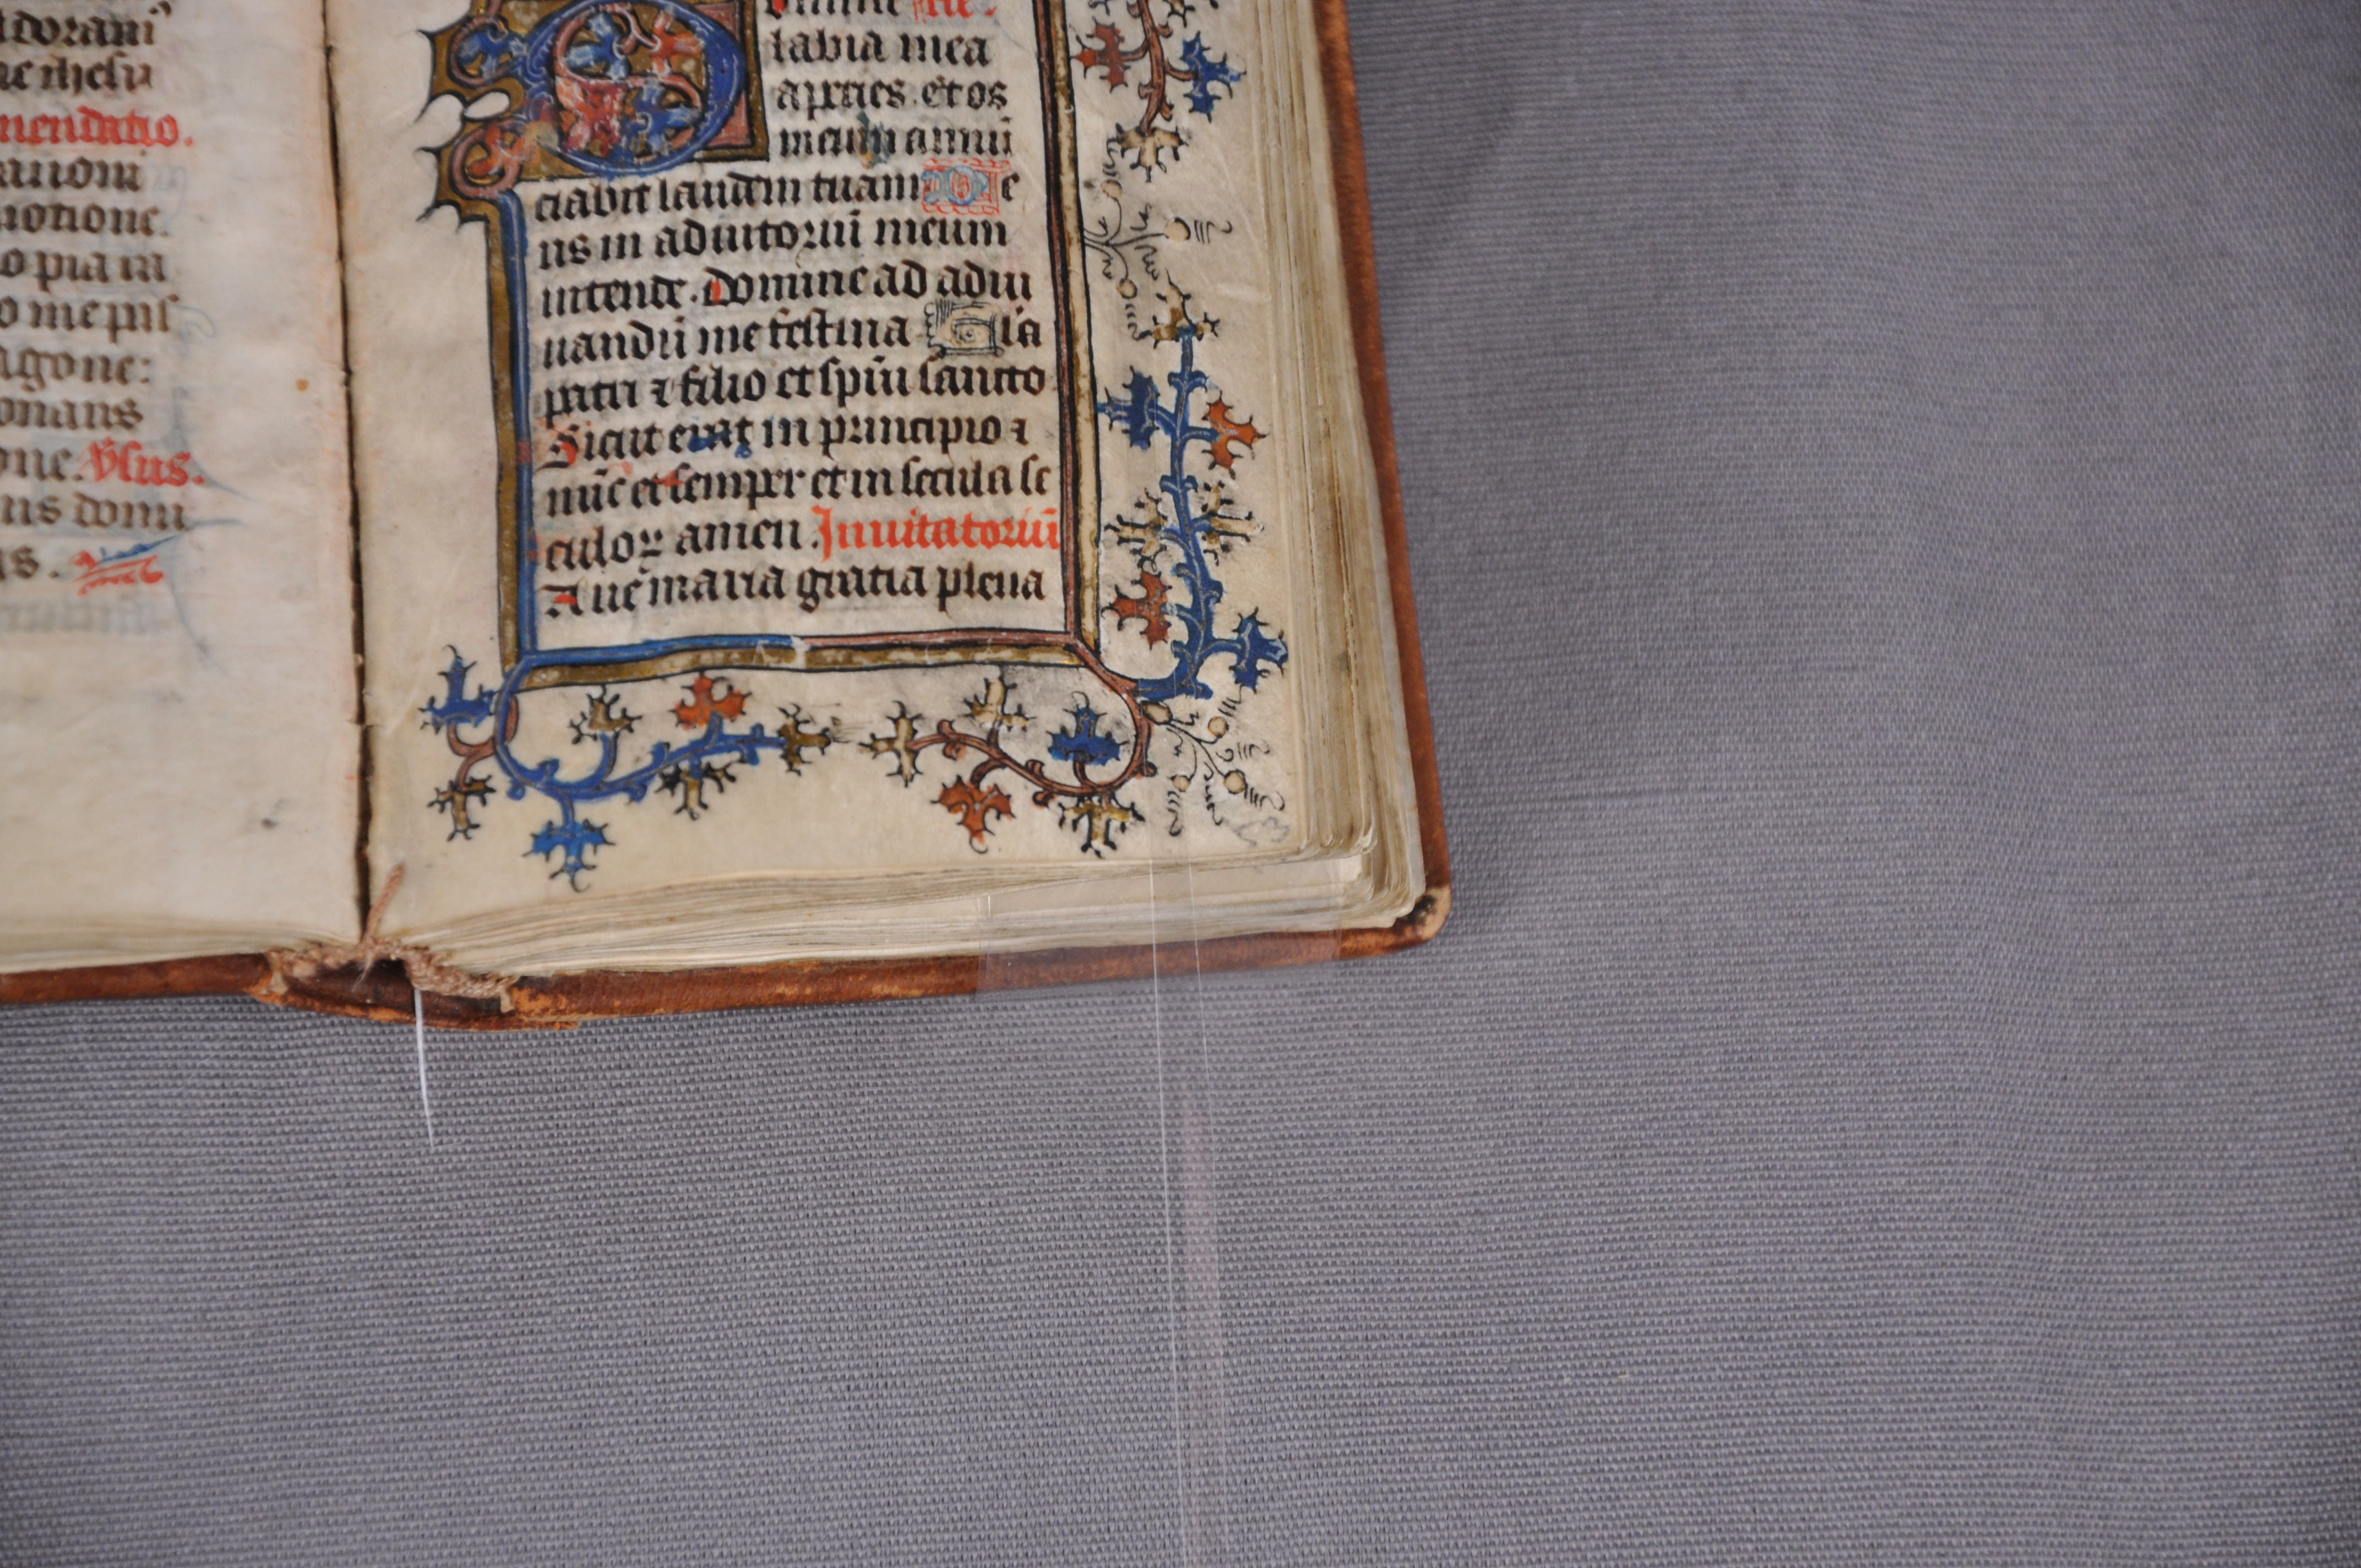 dorani
me ihesu
mendatio.
motione.
o pia in
o me pis
agone:
onans
one. V̄sus.
us domi
us.
Domine
labia mea
aperies. et os
meum annū
ciabit laudem tuam De
us in adiutoriū meum
intende. Domine ad adiu
uandū me festina Gła
patri ⁊ filio et sp̄iu sancto
Sicut erat in principio ⁊
nūc et semper et in secula se
culoꝝ amen. Inuitatoriū
Aue maria gratia plena